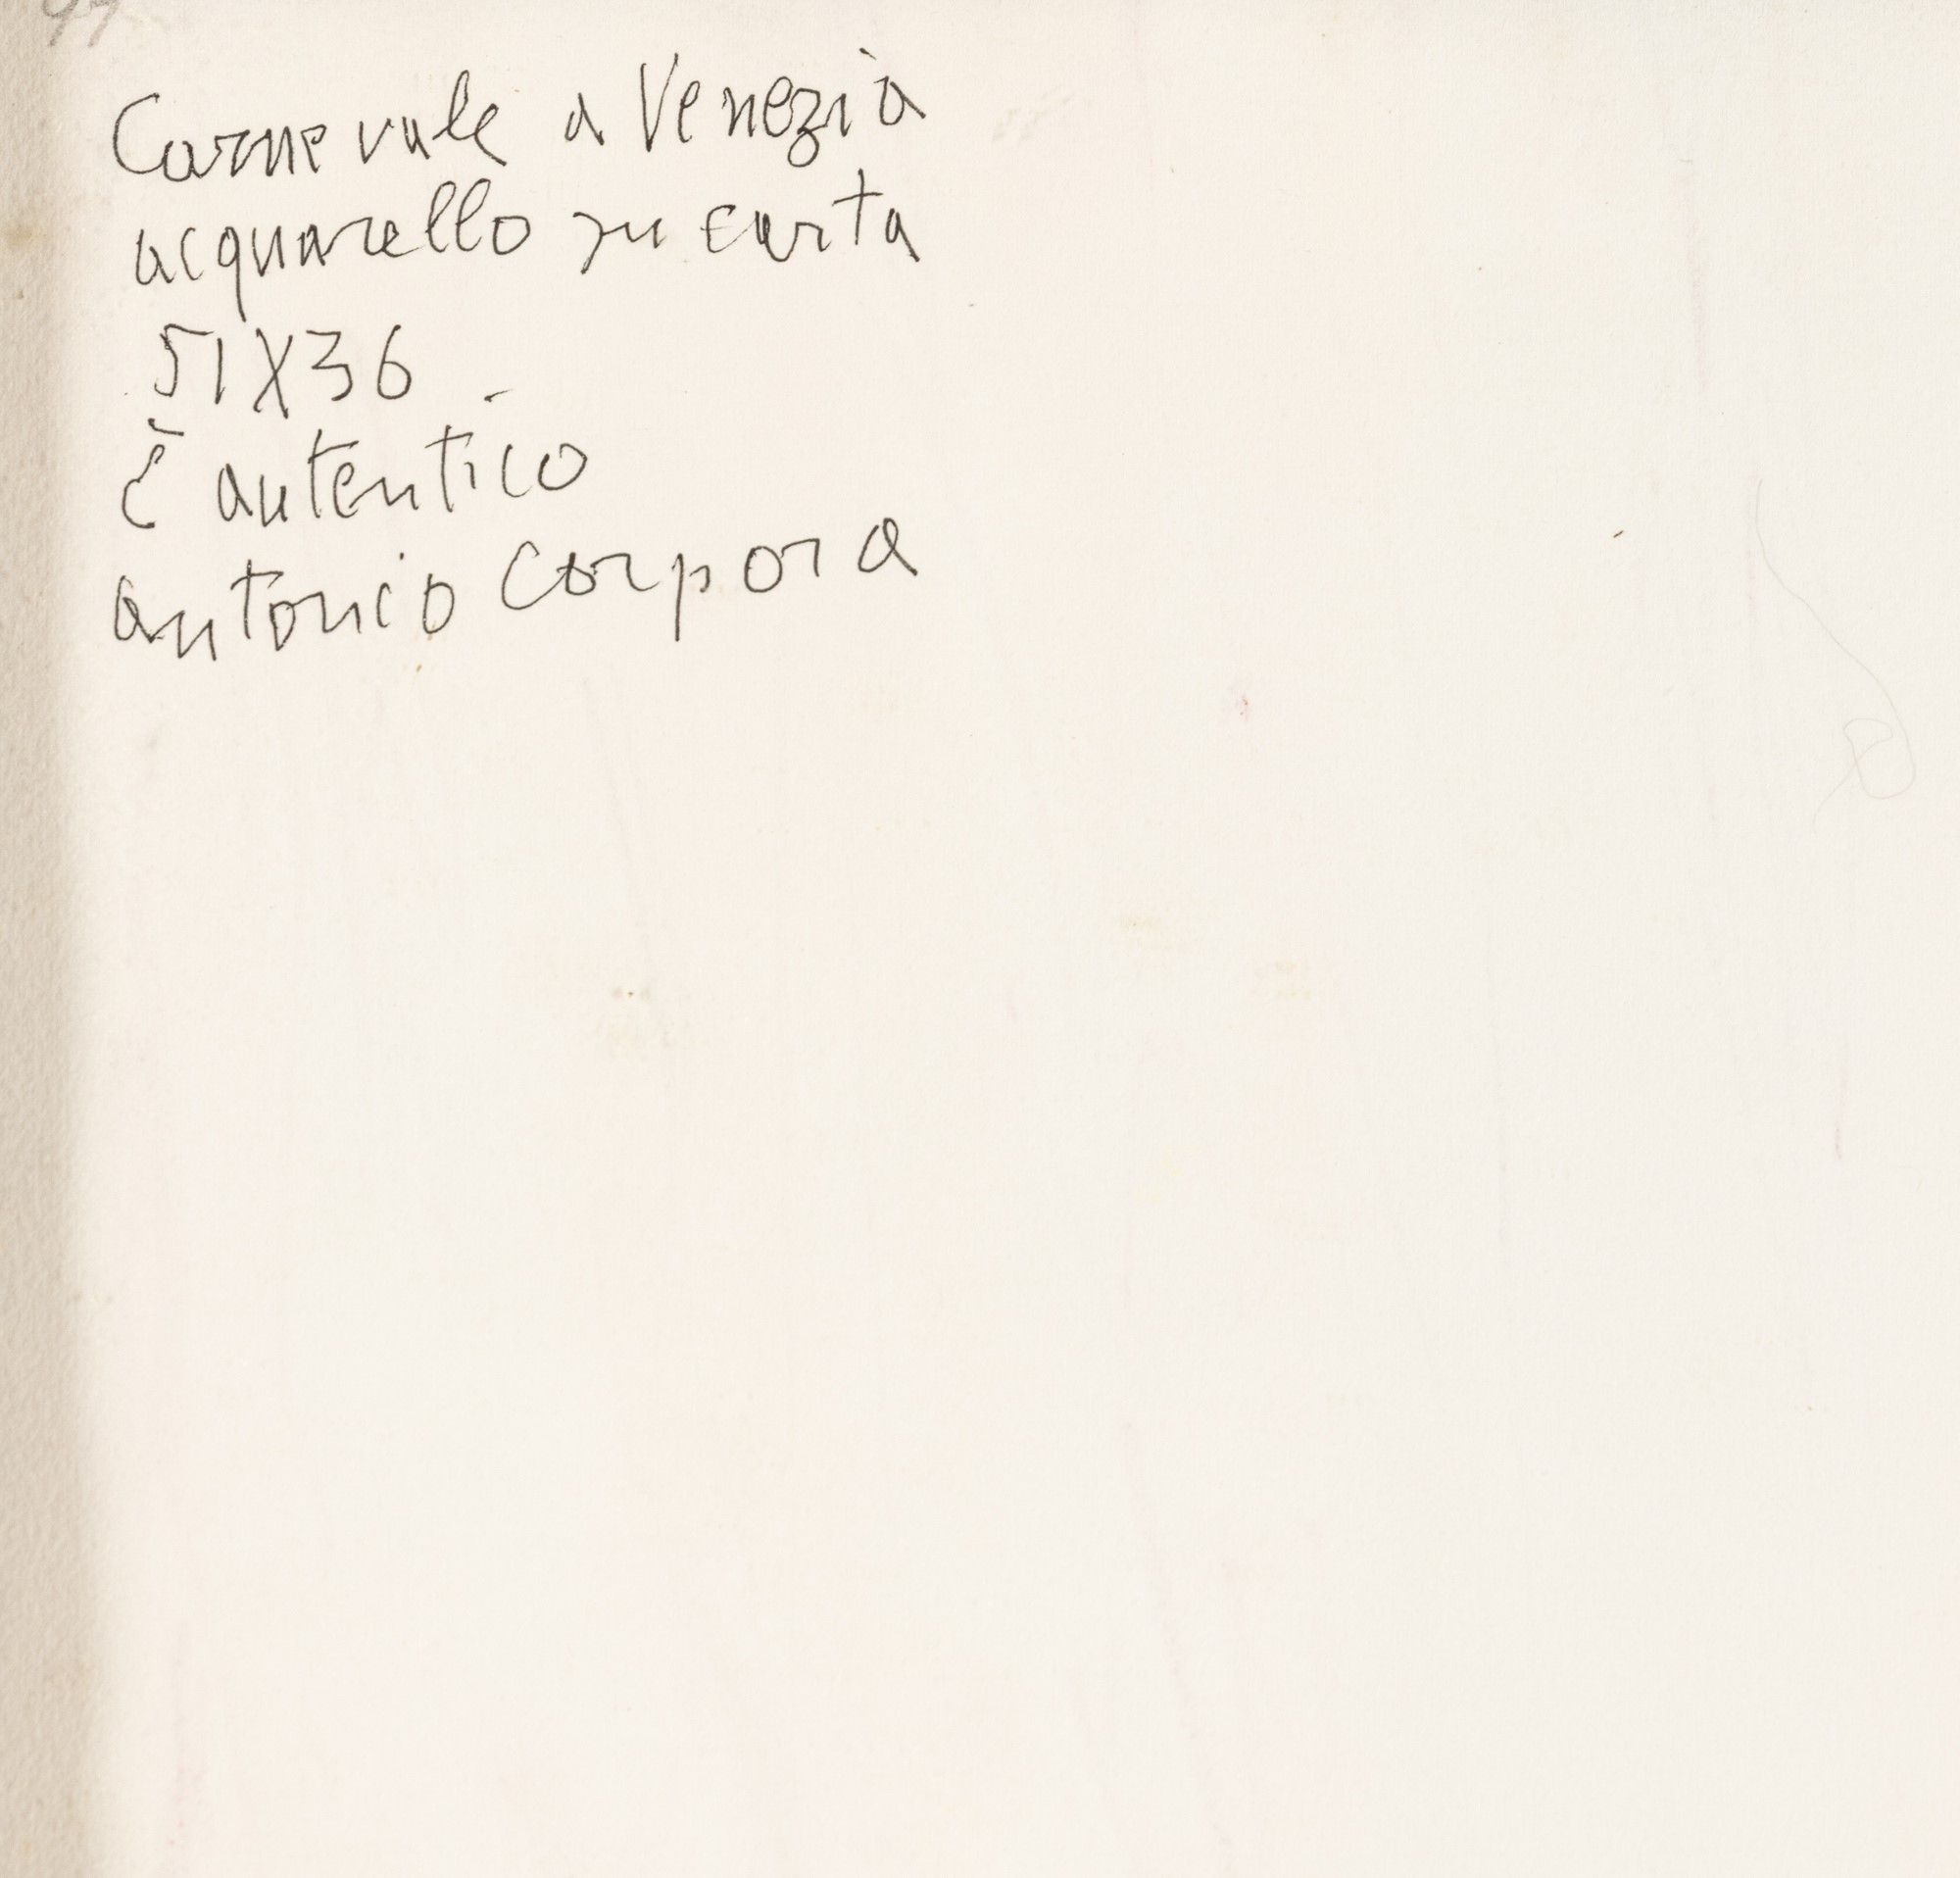 Carnevale a Venezia
acquarello su carta
51X36
È autentico
antonio Corpora